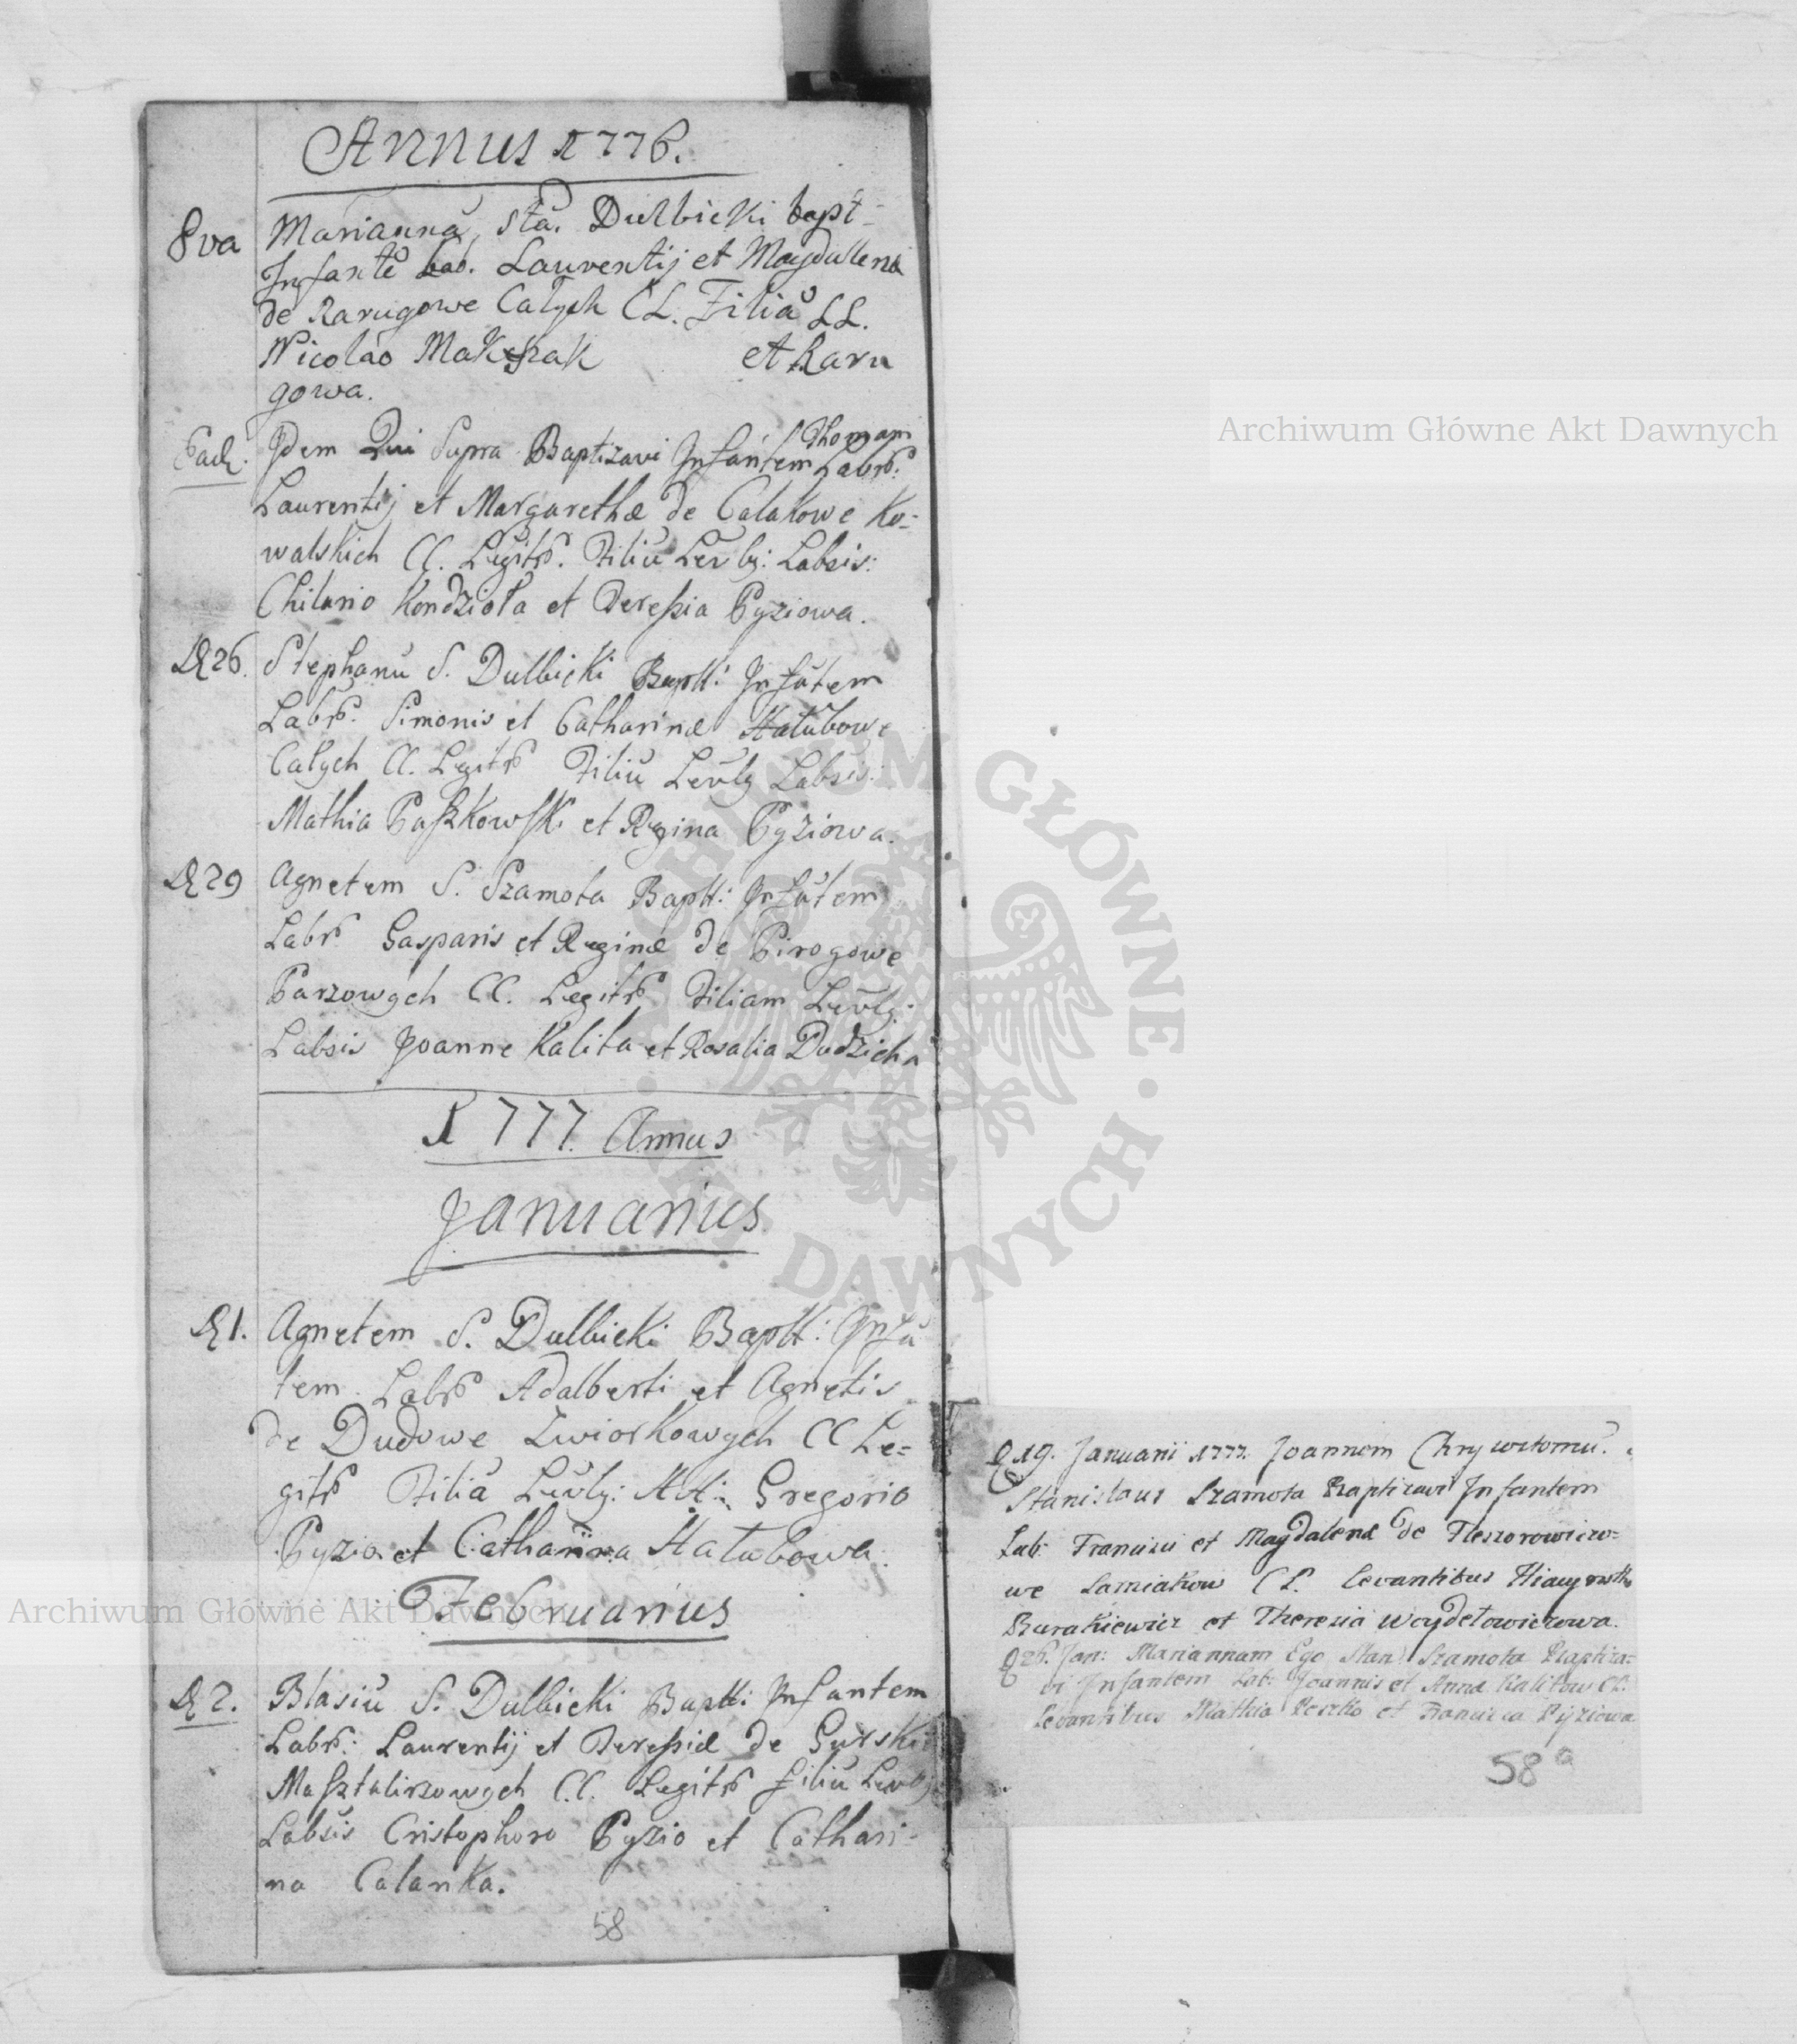 Annus 1776.
8va Marianna, Sta. Dulbicki bapt-
Infante Lab. Laurentij et Magdalena
de Rarugowe Całych CL. Filia LL.
Nicolao Makszak et Raru
gowa.
Eadē. Idem Qui Supra Baptizavi Infantem Thomam Labrs.
Laurentij et Margarethæ de Calakowe Ko-
walskich CC. Legitrs. Filiu Levbg: Labsis:
Chilario Kondzioła et Teressia Pyziowa.
D 26. Stephanu S. Dulbicki Baptt: Infātem
Labrs. Simonis et Catharinæ Hałubowe
Całych CC. Legitrs Filiu Levbg Labsis:
Mathia Paszkowski et Regina Pyziowa.
D 29 Agnetem S. Szamota Baptt: Infātem
Labrs Gasparis et Reginæ de Pirogowe
Parzowych CC. Legitrs Filiam Levbg:
Labsis Joanne Kalita et Rosalia Dudzicha
1777. Annus
Januarius
D 1. Agnetem S. Dulbicki Baptt: Infā
tem Labrs Adalberti et Agnetis
de Dudowe Zwiorkowych CC Le-
gitrs Filiā Levbg: Gregorio
Pyzio et Catharina Hałubowa.
Februarius
D 2. Blasiu S. Dulbicki Baptt: Infantem
Labrs: Laurentij et Teressiæ de Gurski
Masztalirzowych C.C. Legitrs filiu Levbg
Labsis Cristophoro Pyzio et Cathari-
na Calanka.
58
D 19. Januarii 1777. Joannem Chryzostomu.
Stanislaus Szamota Baptizavi Infantem
Lab: Francisci et Magdalenæ de Fleszorowiczo-
we Lamiakow CL. levantibus Hiacyntho
Burakiewicz et Theresia Woydełowiczowa.
D 26. Jan: Mariannam Ego Stan: Szamota Baptiza-
vi Infantem Lab: Joannis et Annæ Kalitow CL.
levantibus Mathia Peszko et Francisca Pyziowa
58a
Archiwum Główne Akt Dawnych
Archiwum Główne Akt Dawnych
ARCHIWUM GŁÓWNE · AKT DAWNYCH ·